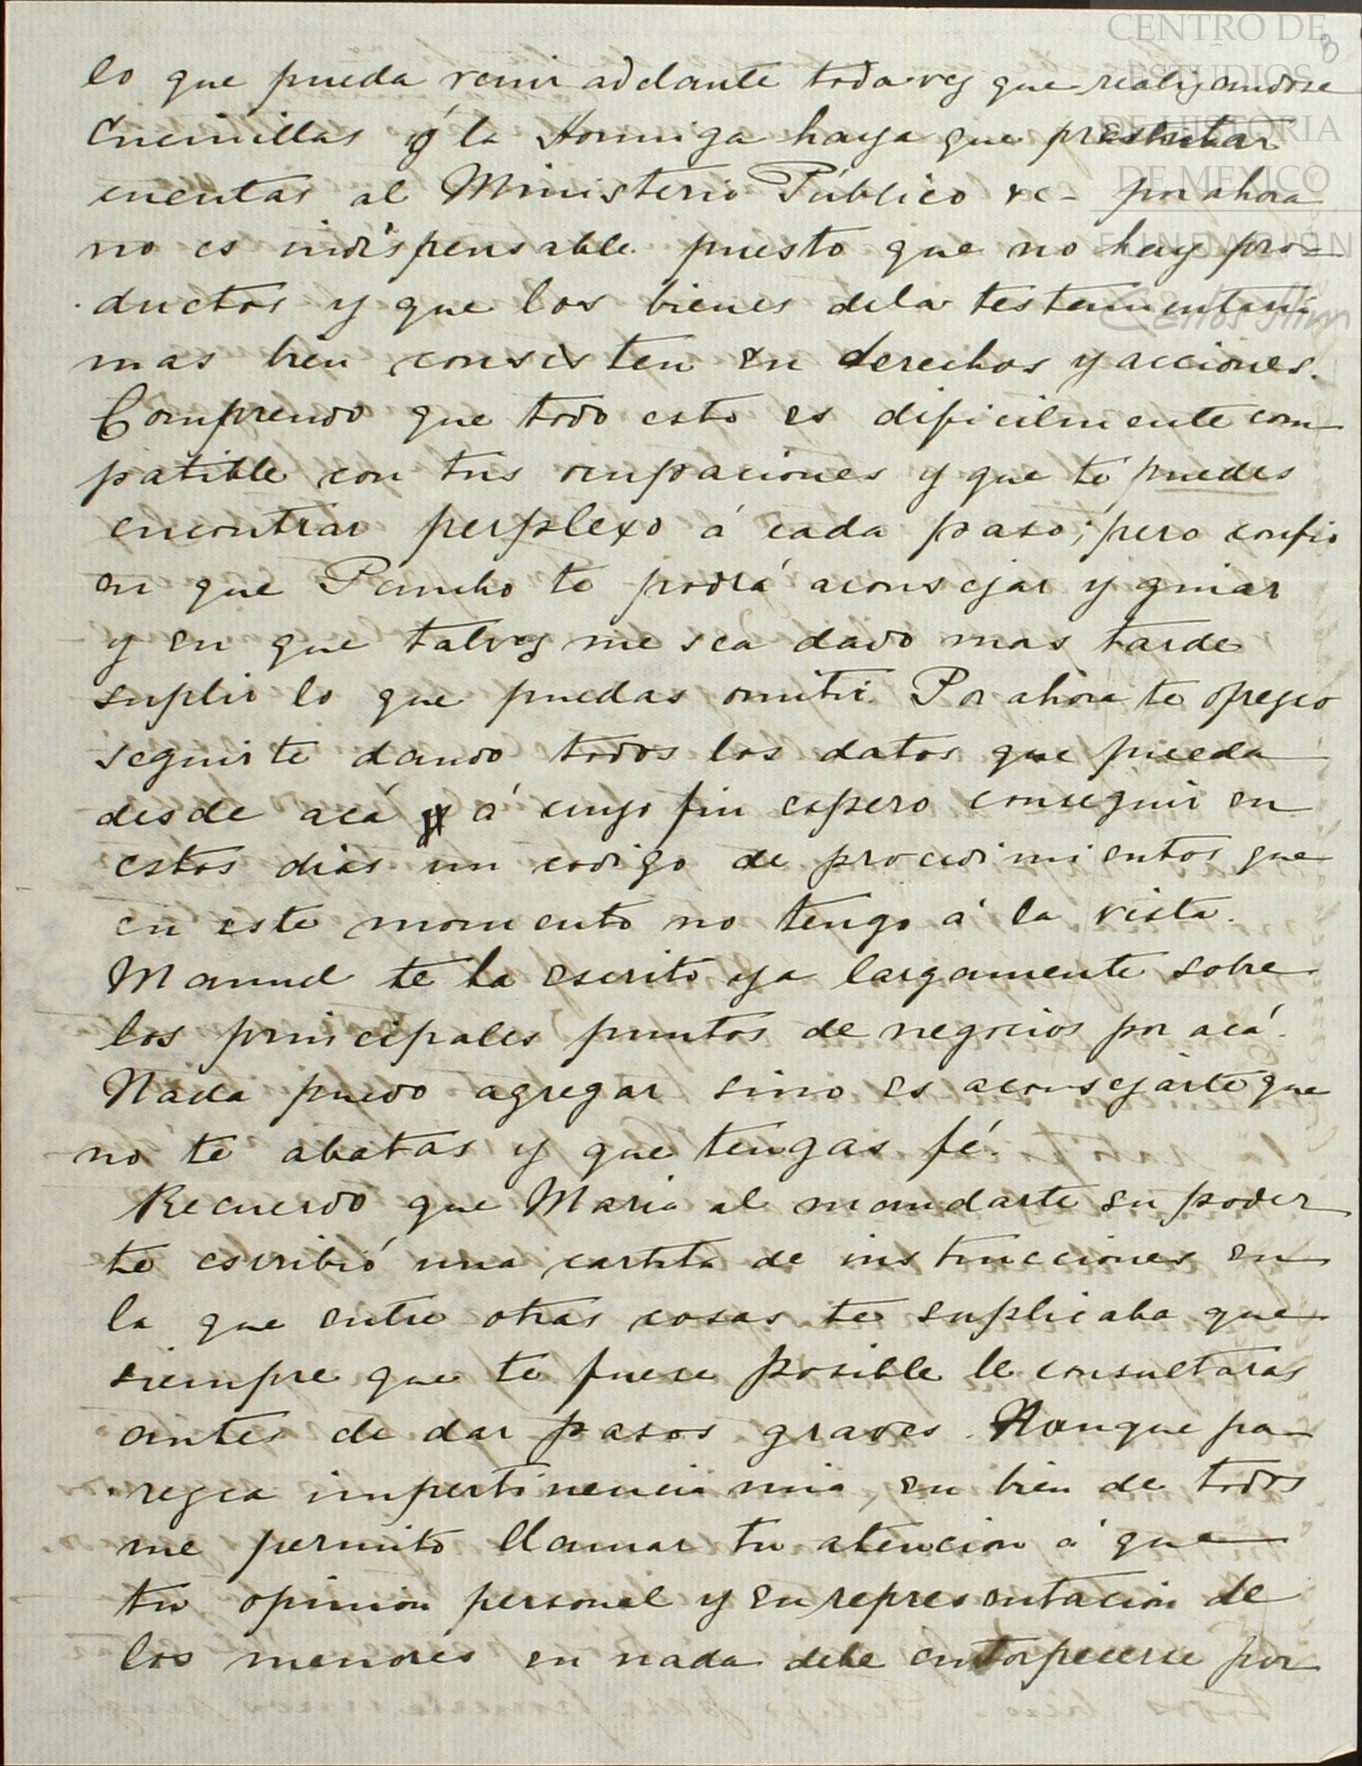 CENTRO DE
ESTUDIOS
DE HISTORIA
DE MEXICO
FUNDACIÓN
Carlos Slim
8
lo que pueda venir adelante toda vez que realizandose
Encinillas ó la Hormiga haya que presentar
cuentas al Ministerio Público &c - por ahora
no es indispensable puesto que no hay pro-
ductos y que los bienes de la testamentaria
mas bien consisten en derechos y acciones.
Comprendo que todo esto es dificilmente com-
patible con tus ocupaciones y que te puedes
encontrar perplexo á cada paso; pero confio
en que Pancho te podrá aconsejar y guiar
y en que talvez me sea dado mas tarde
suplir lo que puedas omitir. Por ahora te ofrezco
seguirte dando todos los datos que pueda
desde acá á cuyo fin espero conseguir en
estos dias un codigo de procedimientos que
en este momento no tengo á la vista.
Manuel te ha escrito ya largamente sobre
los principales puntos de negocios por acá.
Nada puedo agregar sino es aconsejarte que
no te abatas y que tengas fé.
Recuerdo que Maria al mandarte su poder
te escribió una cartita de instrucciones en
la que entre otras cosas te suplicaba que
siempre que te fuese posible le consultaras
antes de dar pasos graves. Aunque pa-
rezca impertinencia mia, en bien de todos
me permito llamar tu atencion á que
tu opinion personal y en representacion de
los menores en nada debe entorpecerse por